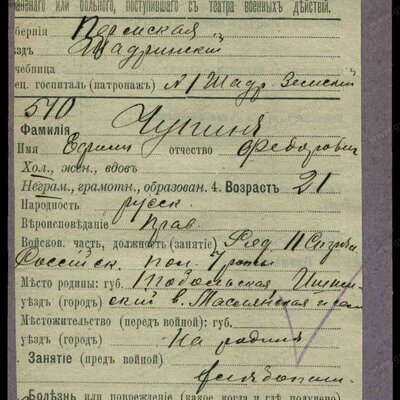 раненаго или больного, поступившаго съ театра военныхъ дѣйствій.
губернія Пермская
уѣздъ Шадринскій
лечебница
спец. госпиталь (патронажъ) №1 Шадр. Земскій
510
Фамилія Чупинъ
Имя Ефимъ отчество Федоровичъ
Хол., жен., вдовъ
Неграм., грамотн., образован. 4. Возрастъ 21
Народность русск.
Вѣроисповѣданіе Прав.
Войсков. часть, должность (занятіе) Ряд 11
Россійск. пол. 7 роты
Мѣсто родины: губ. Тобольская Ишим
уѣздъ (городъ) скій в.
Мѣстожительство (передъ войной): губ.
уѣздъ (городъ) На родинѣ
Занятіе (предъ войной)
Болѣзнь или поврежденіе (какое, когда и гдѣ получено)